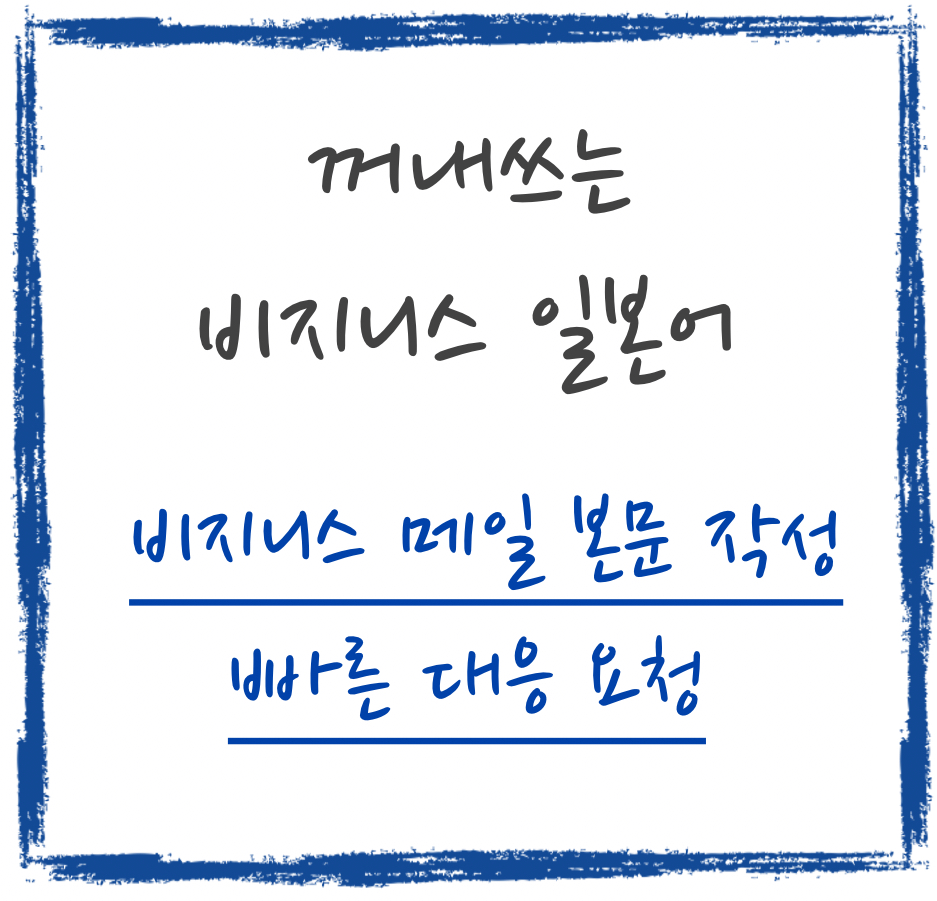 꺼내쓰는
비지니스 일본어
비지니스 메일 본문 작성
빠른 대응 요청